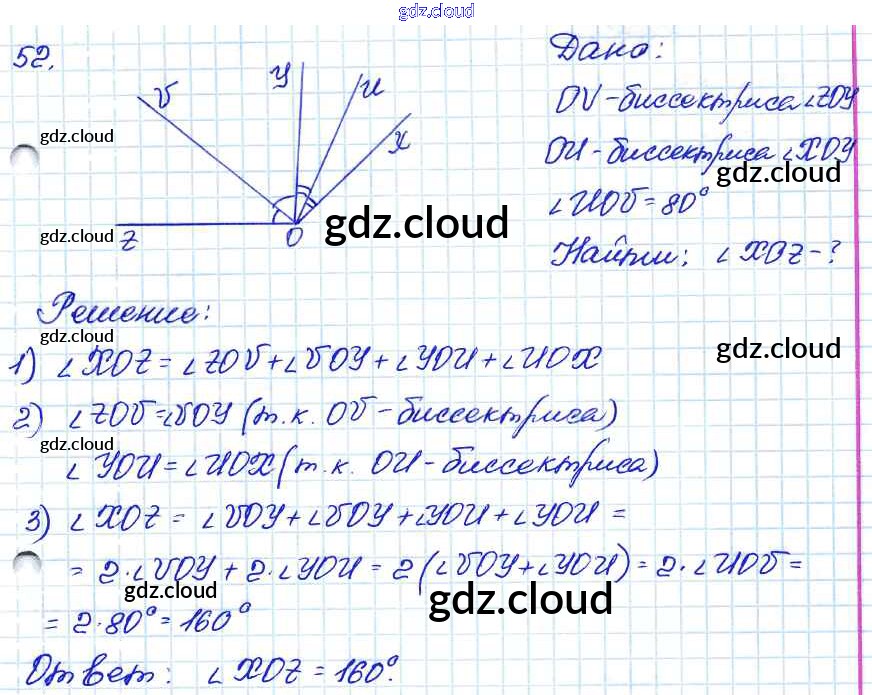 gdz.cloud
52.
Дано:
V У U X
Z O
OV - биссектриса ∠ZOY
OU - биссектриса ∠XOY
∠UOV = 80°
Найти: ∠XOZ - ?
gdz.cloud
gdz.cloud
gdz.cloud
gdz.cloud
Решение:
1) ∠XOZ = ∠ZOV + ∠VOY + ∠YOU + ∠UOX
gdz.cloud
gdz.cloud
2) ∠ZOV = ∠VOY (т.к. OV - биссектриса)
gdz.cloud
∠YOU = ∠UOX (т.к. OU - биссектриса)
3) ∠XOZ = ∠VOY + ∠VOY + ∠YOU + ∠YOU =
= 2·∠VOY + 2·∠YOU = 2(∠VOY + ∠YOU) = 2·∠UOV =
gdz.cloud
gdz.cloud
= 2·80° = 160°
Ответ: ∠XOZ = 160°.